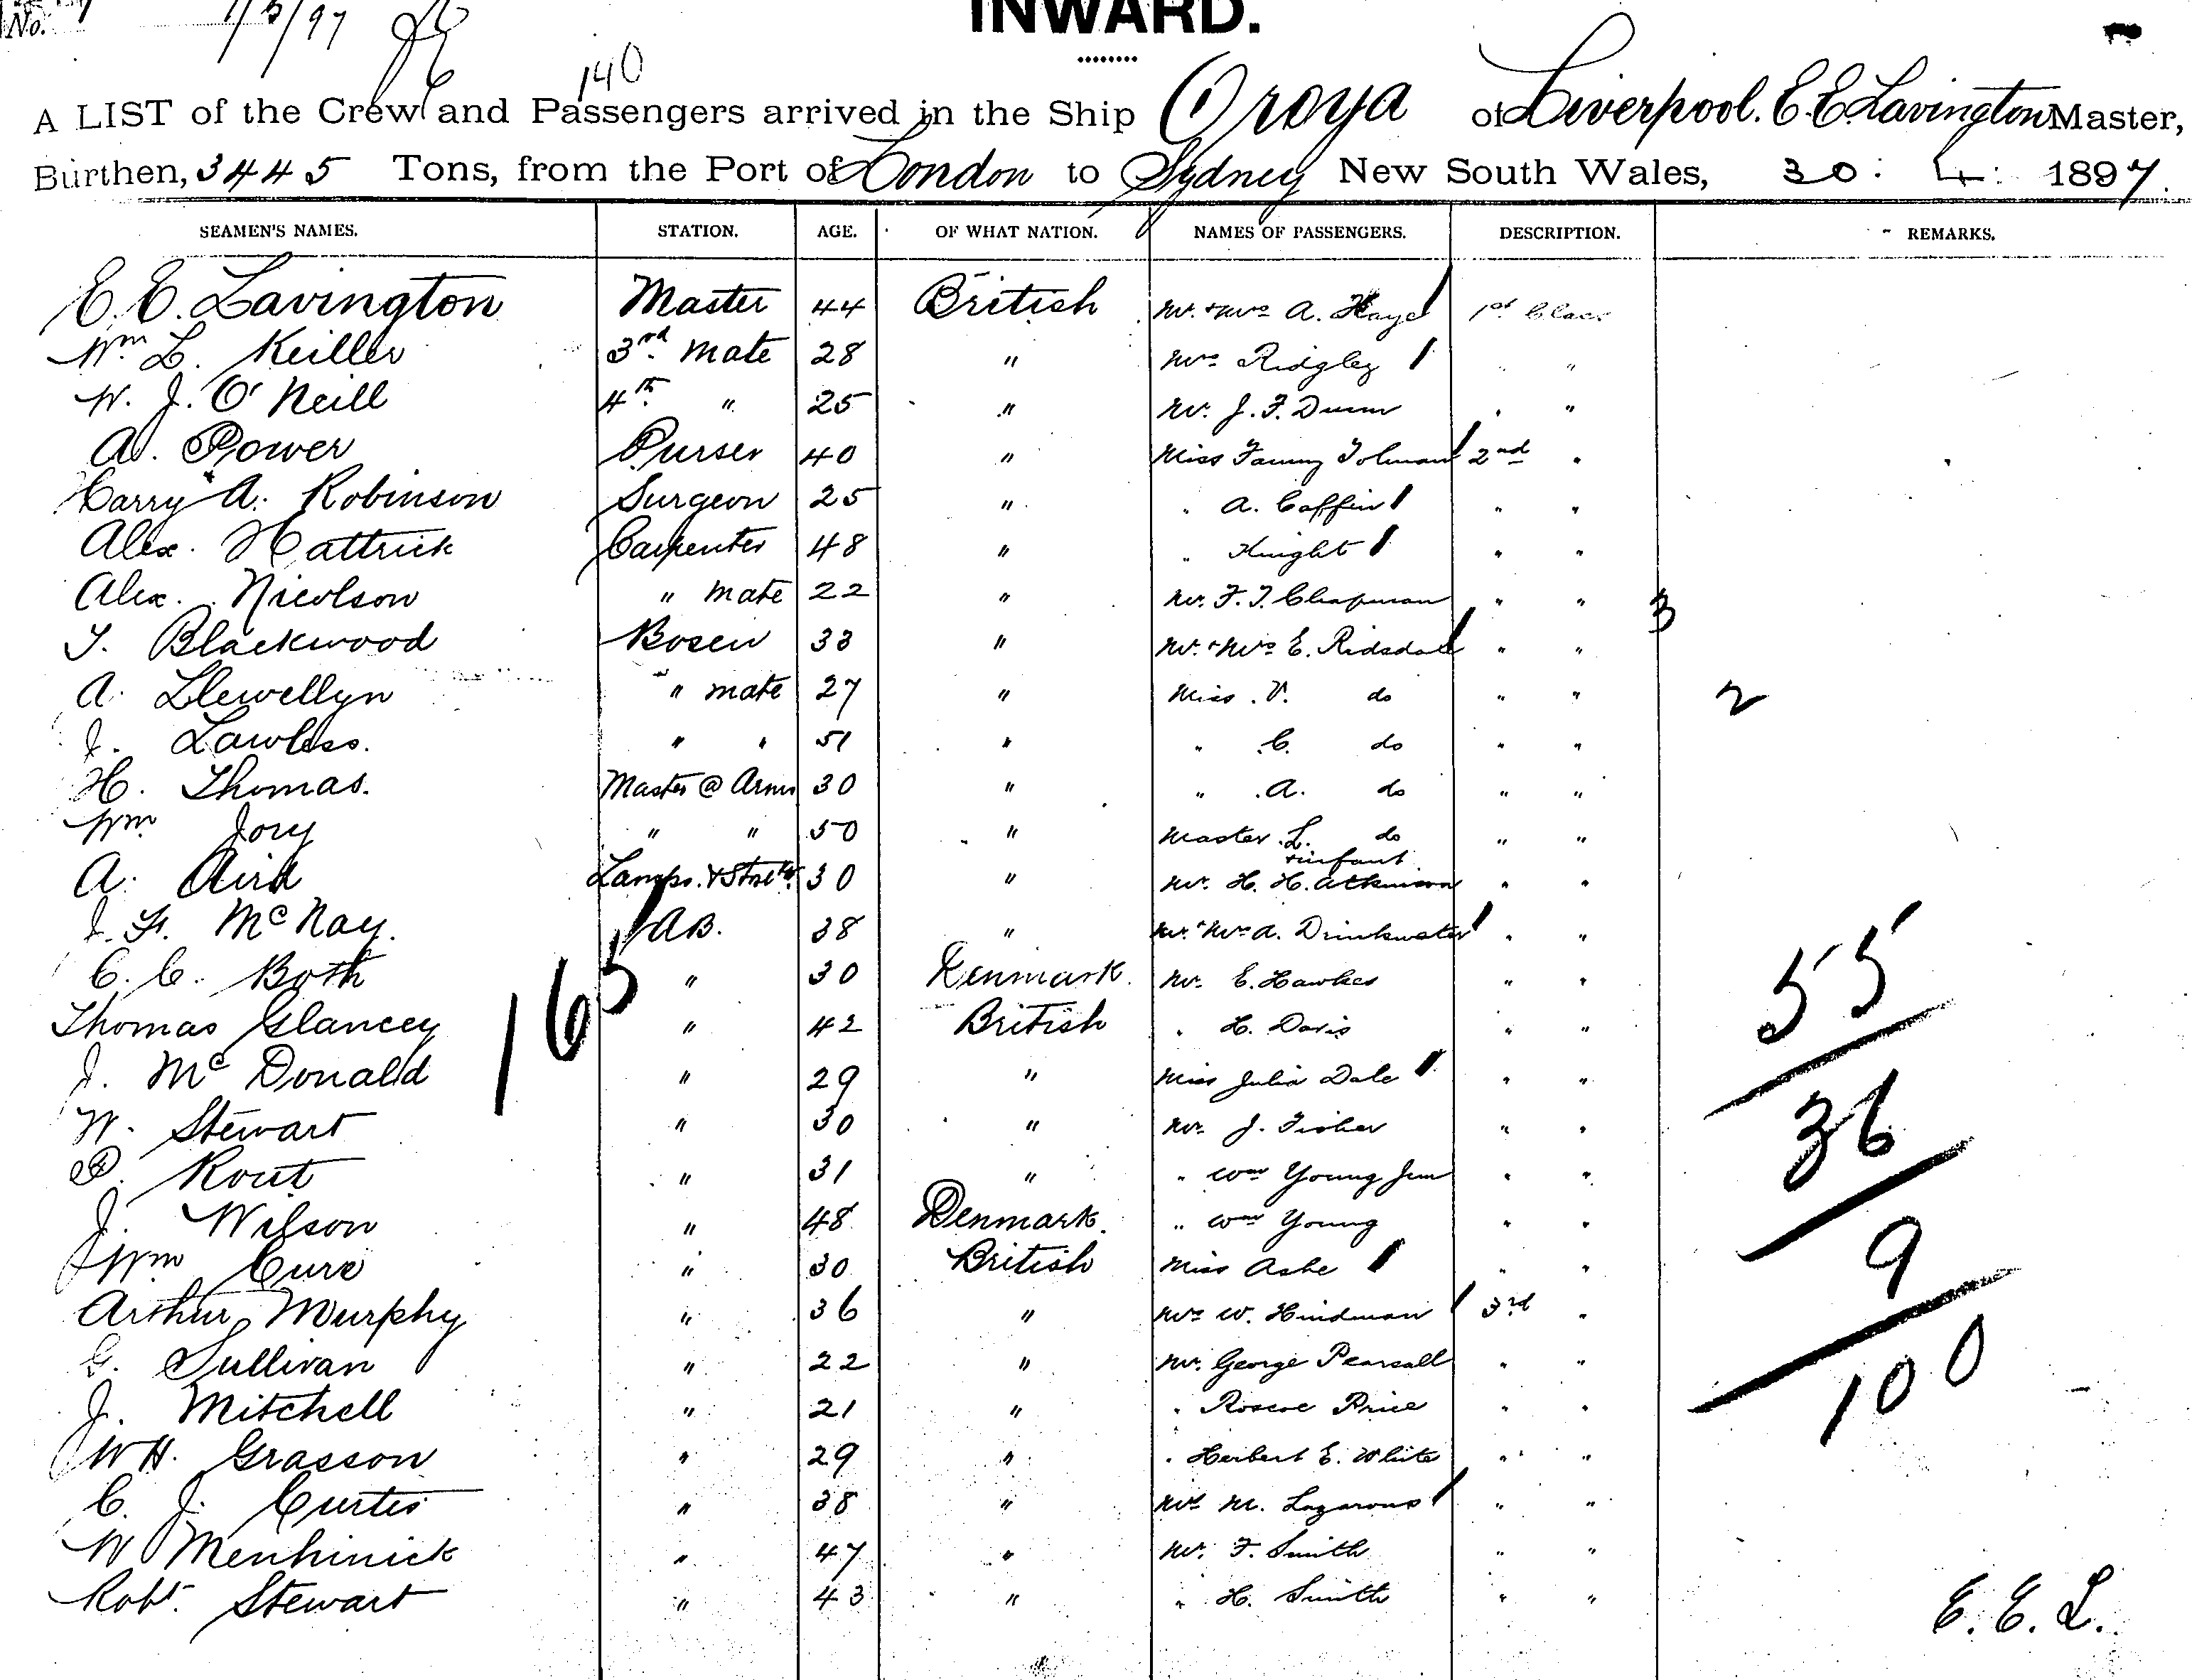 No. 1/5/97
INWARD.
140
A LIST of the Crew and Passengers arrived in the Ship Oroya of Liverpool. E. E. Lavington Master,
Burthen, 3445 Tons, from the Port of London to Sydney New South Wales, 30: 4: 1897.
SEAMEN'S NAMES. STATION. AGE. OF WHAT NATION. NAMES OF PASSENGERS. DESCRIPTION. REMARKS.
E. E. Lavington Master 44 British Mr. + Mrs A. 1st Class
Wm. L. Keiller 3rd. Mate 28 " Mrs Ridgley " "
W. J. O'Neill 4th. " 25 " Mr. J. F. Dunn " "
A. Power Purser 40 " Miss Fanny Tolman 2nd "
Harry A. Robinson Surgeon 25 " " A. Caffin " "
Alex. Hattrick Carpenter 48 " " Knight " "
Alex. Nicolson " Mate 22 " Mr. F. T. Chapman " " 3
T. Blackwood Bosen 33 " Mr. + Mrs E. Ridsdale " "
A. Llewellyn " mate 27 " Miss V. do " " 2
J. Lawless. " " 51 " " C. do " "
H. Thomas. Master @ Arms 30 " " A. do " "
Wm Jory " " 50 " Master L. do " "
+ infant
A. Aird Lamps. & 30 " Mr. H. H. Atkinson " "
J. F. McNay. AB. 38 " Mr. + Mrs A. Drinkwater " "
C. C. Both " 30 Denmark. Mr. E. Hawkes " " 55
165
Thomas Glancey " 42 British " H. Davis " "
J. McDonald " 29 " Miss Julia Dale " "
W. Stewart " 30 " Mr. J. Fisher " " 36
Rout " 31 " " Wm Young Jun " "
J. Wilson " 48 Denmark. " Wm Young " "
Wm Cure " 30 British Miss Ashe " " 9
Arthur Murphy " 36 " Mrs W. Hindman 3rd "
G. Sullivan " 22 " Mr. George Pearsall " "
J. Mitchell " 21 " " Roscoe Price " " 100
W H. Grasson " 29 " " Herbert E. White " "
C. J. Curtis " 38 " Mrs M. Lazarous " "
W Menhinick " 47 " Mr. F. Smith " "
Robt. Stewart " 43 " " H. Smith " "
E. E. L.